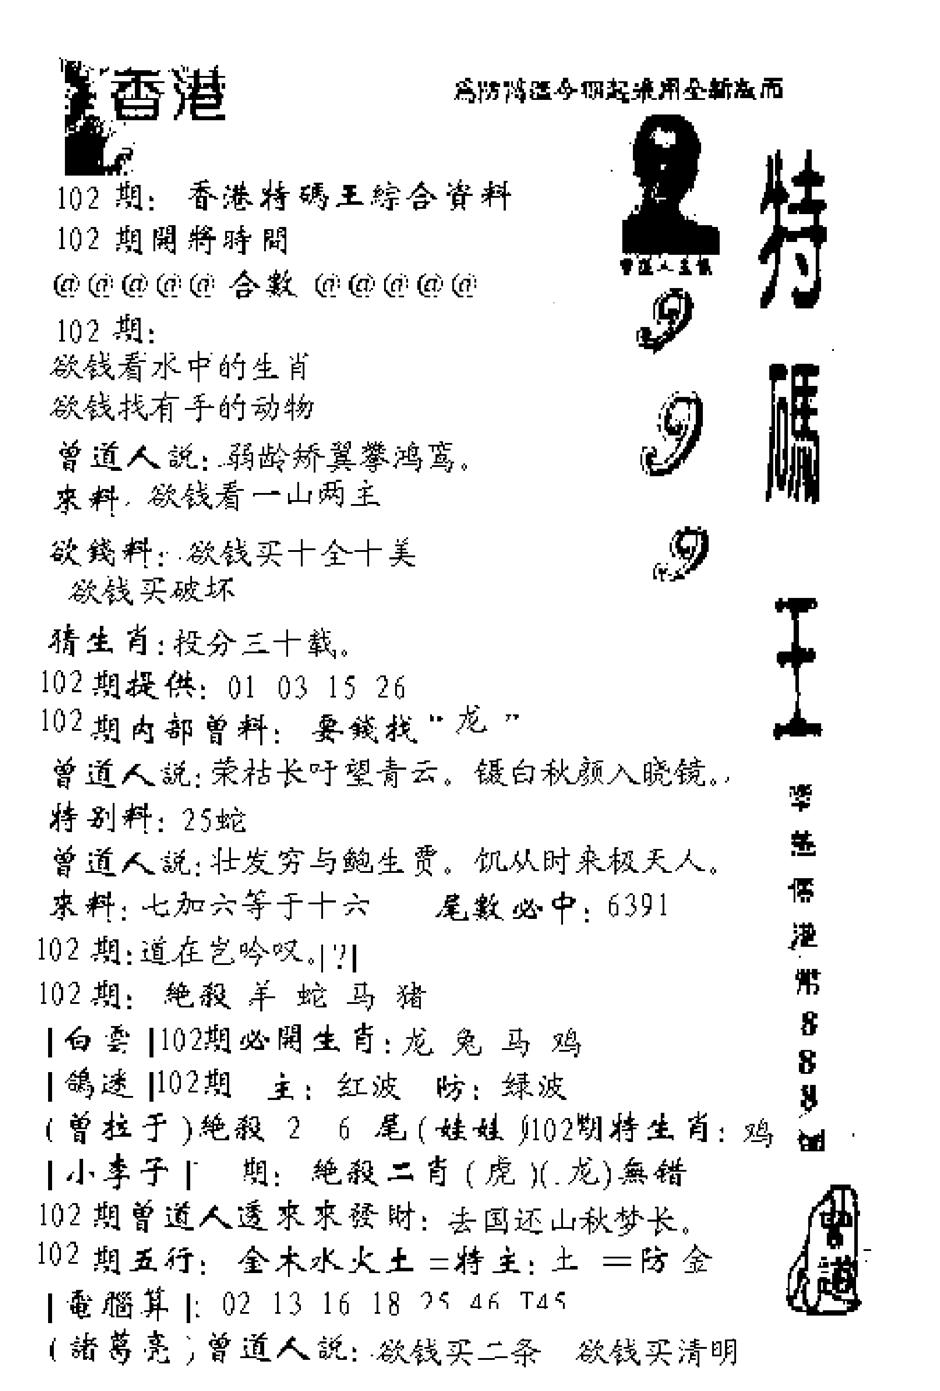 香港
為防濫今期起采用全新版面
特碼王
曾道人
999
102 期: 香港特碼王綜合資料
102 期開將時間
@@@@@ 合數 @@@@@
102 期:
欲钱看水中的生肖
欲钱找有手的动物
曾道人説: 弱龄矫翼攀鸿鸾。
來料: 欲钱看一山两主
欲錢料: 欲钱买十全十美
欲钱买破坏
猜生肖: 投分三十载。
102 期提供: 01 03 15 26
102 期内部曾料: 要錢找“龙”
曾道人説: 荣枯长吁望青云。镊白秋颜入晓镜。
特别料: 25蛇
曾道人説: 壮发穷与鲍生贾。饥从时来极天人。
來料: 七加六等于十六 尾數必中: 6391
102 期: 道在岂吟叹。|?|
102 期: 絶殺 羊 蛇 马 猪
|白雲|102期必開生肖: 龙 兔 马 鸡
|鴿迷|102期 主: 红波 防: 绿波
(曾拉于)絶殺 2 6 尾(娃娃)102期特生肖: 鸡
|小李子| 期: 絶殺二肖(虎)(.龙)無错
102 期曾道人透來來發財: 去国还山秋梦长。
102 期五行: 金木水火土=特主: 土 =防 金
|電腦算|: 02 13 16 18 25 46 T45
(諸葛亮)曾道人説: 欲钱买二条 欲钱买清明
港幣888
曾道